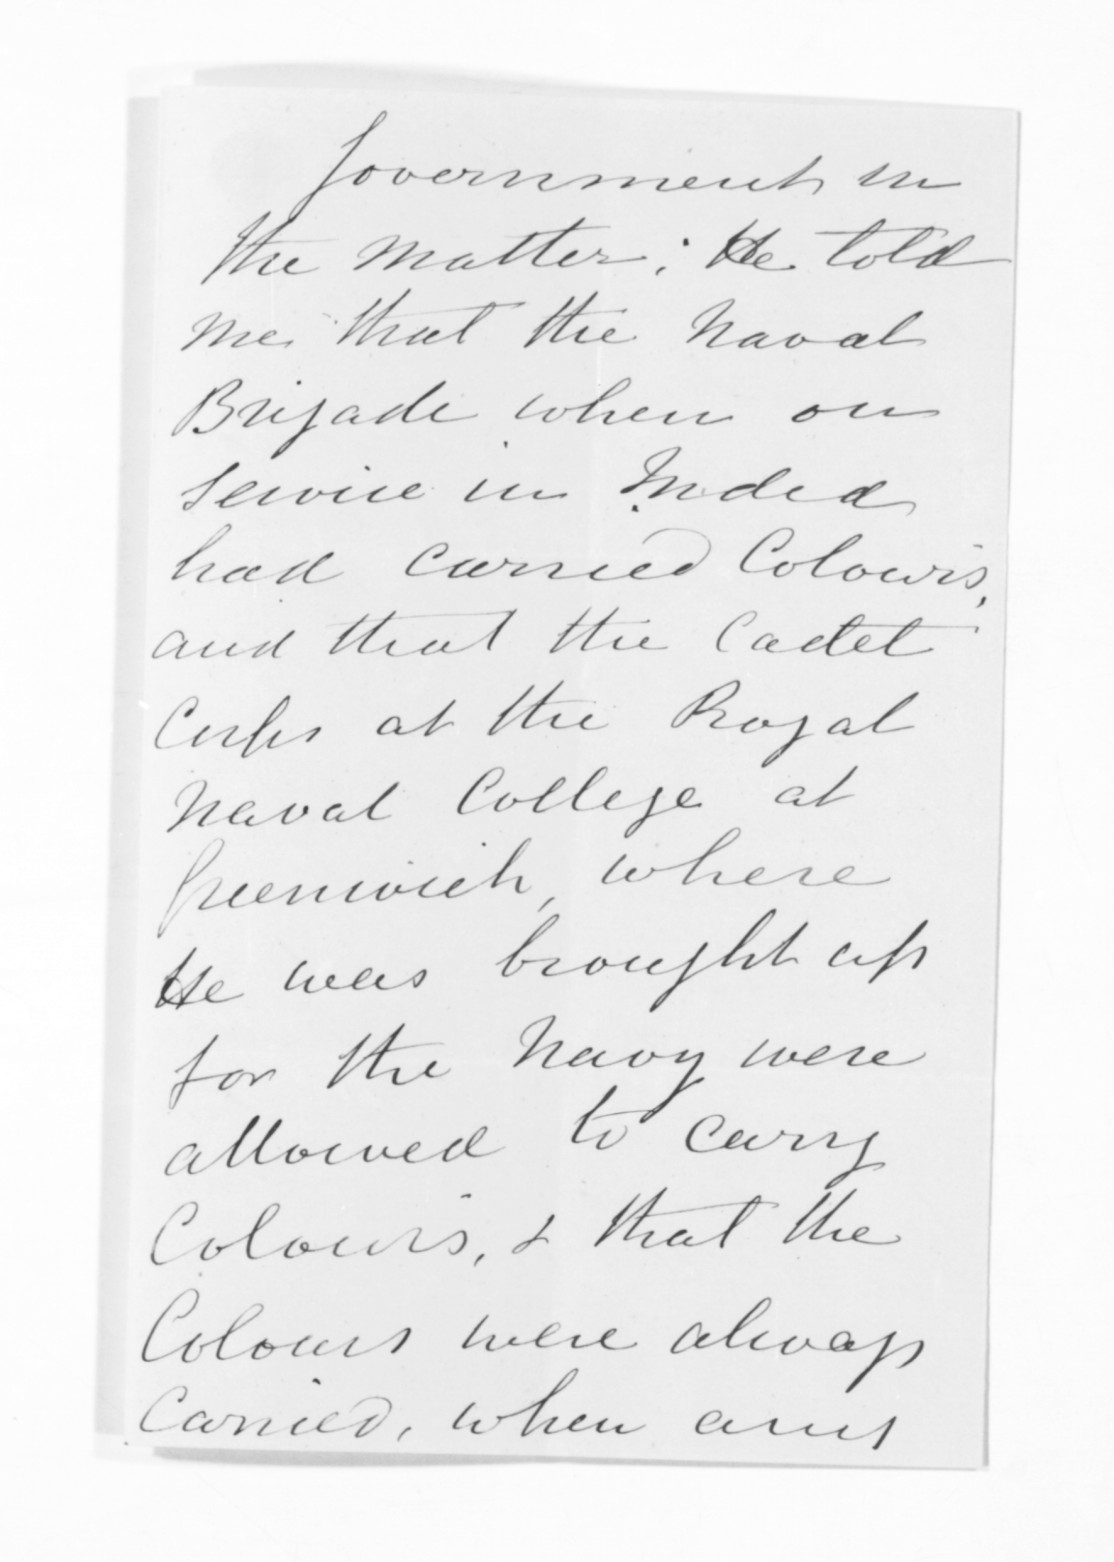 Government in
the matter; He told
me that the Naval
Brigade when on
service in India
had carried Colours,
and that the Cadet
Corps at the Royal
Naval College at
Greenwich, where
He was brought up
for the Navy were
allowed to carry
Colours, & that the
Colours were always
carried, when arms